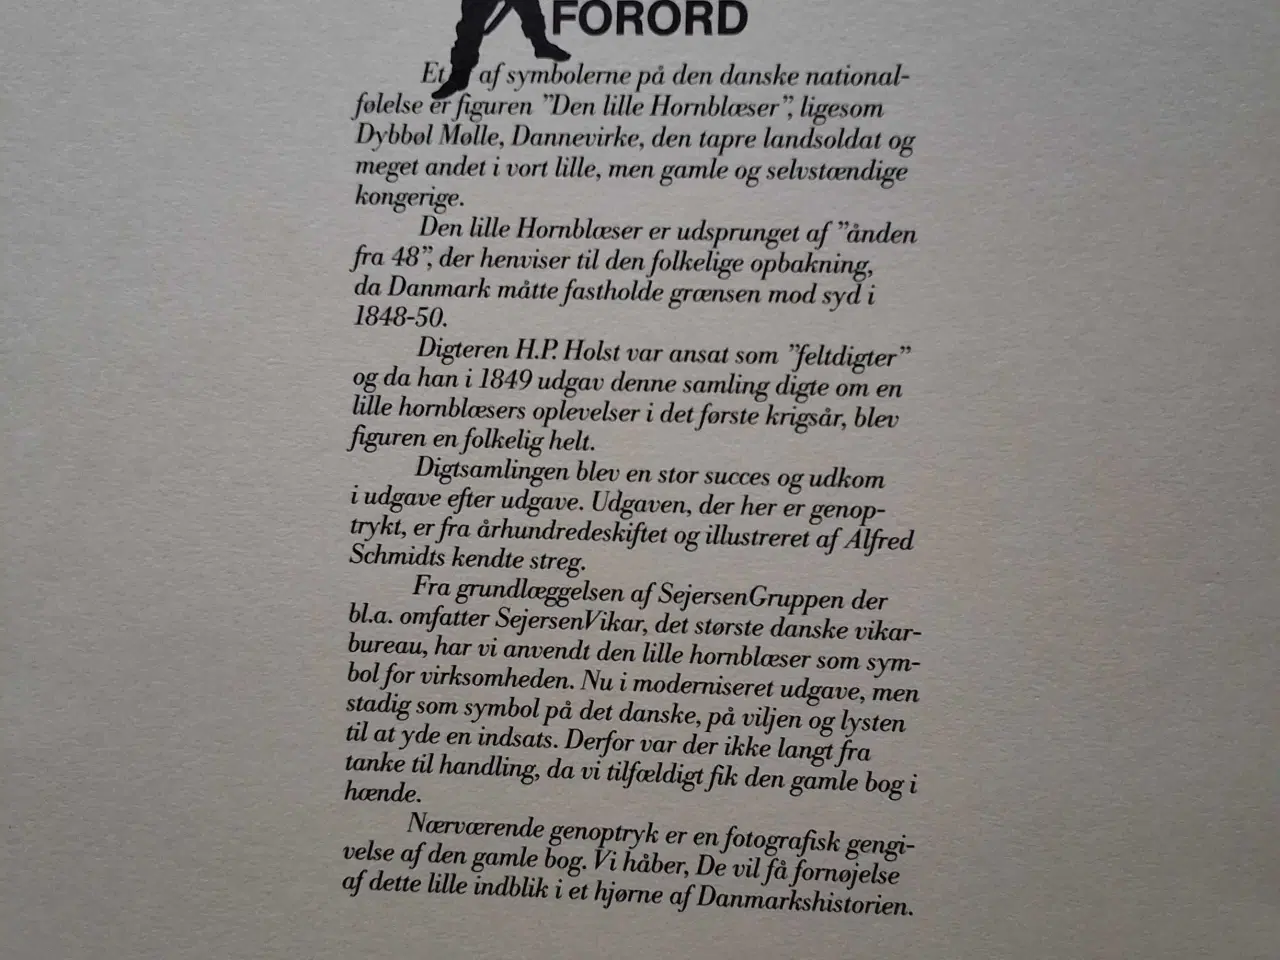 FORORD
Et af symbolerne på den danske national-
følelse er figuren ”Den lille Hornblæser”, ligesom
Dybbøl Mølle, Dannevirke, den tapre landsoldat og
meget andet i vort lille, men gamle og selvstændige
kongerige.
Den lille Hornblæser er udsprunget af ”ånden
fra 48”, der henviser til den folkelige opbakning,
da Danmark måtte fastholde grænsen mod syd i
1848-50.
Digteren H.P. Holst var ansat som ”feltdigter”
og da han i 1849 udgav denne samling digte om en
lille hornblæsers oplevelser i det første krigsår, blev
figuren en folkelig helt.
Digtsamlingen blev en stor succes og udkom
i udgave efter udgave. Udgaven, der her er genop-
trykt, er fra århundredeskiftet og illustreret af Alfred
Schmidts kendte streg.
Fra grundlæggelsen af SejersenGruppen der
bl.a. omfatter SejersenVikar, det største danske vikar-
bureau, har vi anvendt den lille hornblæser som sym-
bol for virksomheden. Nu i moderniseret udgave, men
stadig som symbol på det danske, på viljen og lysten
til at yde en indsats. Derfor var der ikke langt fra
tanke til handling, da vi tilfældigt fik den gamle bog i
hænde.
Nærværende genoptryk er en fotografisk gengi-
velse af den gamle bog. Vi håber, De vil få fornøjelse
af dette lille indblik i et hjørne af Danmarkshistorien.